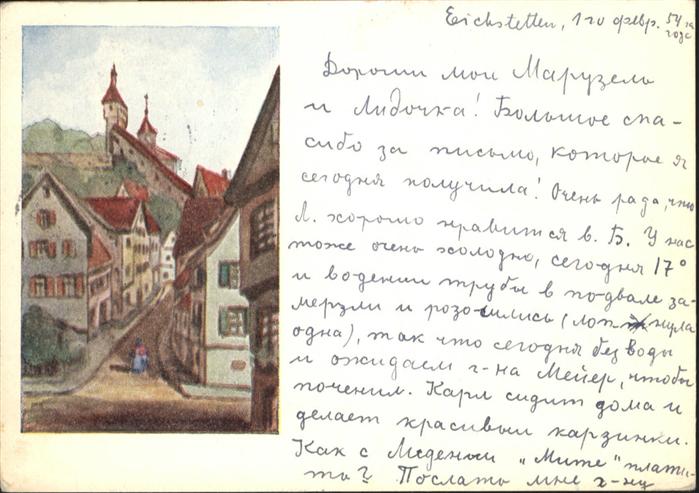 Eichstetten, 1го февр. 54го
годе
Дорогии мои Марузель
и Лидочка! Большое спа-
сибо за письмо, которое я
сегодня получила! Очень рада, что
Л. хорошо нравится в. Б. У нас
тоже очень холодно, сегодня 17°
и водении трубы в подвале за-
мерзли и розошились (лопнула
одна), так что сегодня без воды
и ожидаем г-на Мейер, чтобы
починил. Карл сидит дома и
делает красивыи карзинки.
Как с "Мите" плати-
те? Послать мне г-ну